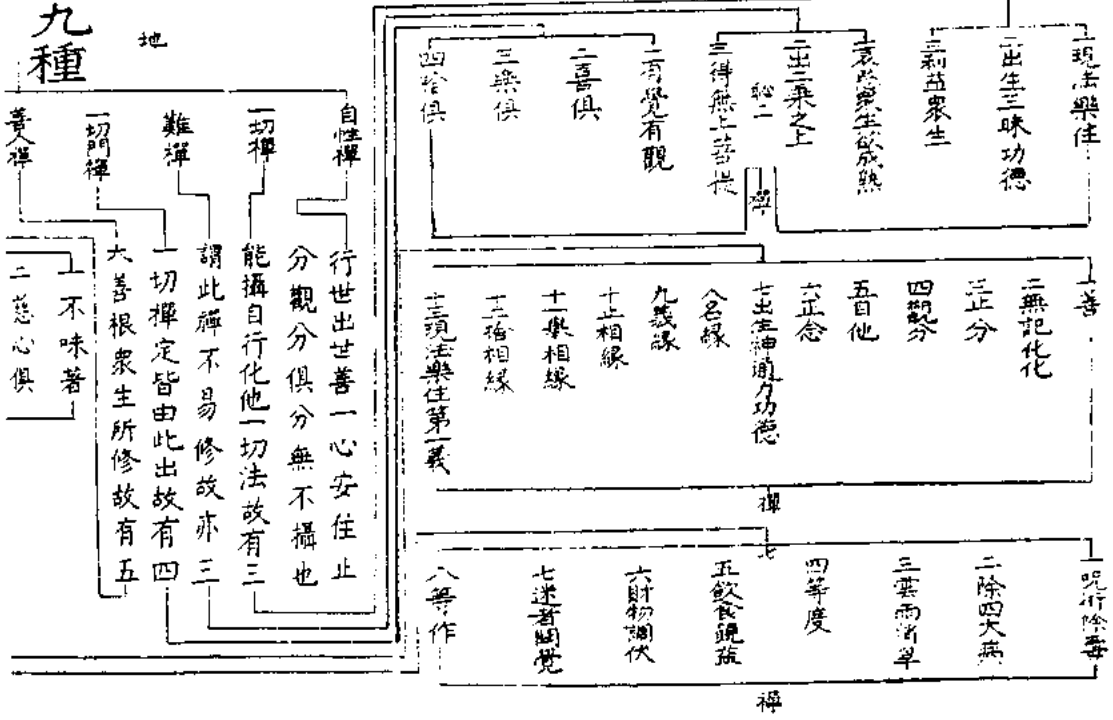 九種
地
自性禪
一切禪
難禪
一切門禪
善人禪
行世出世善一心安住止
分觀分分俱分無不攝也
能攝自行化他一切法故有三
謂此禪不易修故亦三
一切禪定皆由此出故有四
大善根衆生所修故有五
一不味著
二慈心俱
一現法樂住
二出生三昧功德
三利益衆生
二出二乘之上
三得無上菩提
二
禪
二有覺有觀
二喜俱
三樂俱
四捨俱
一善
二無記化化
三止分
四觀分
五自他
六正念
七出生神通力功德
八名緣
九義緣
十止相緣
十一樂相緣
十二捨相緣
十三現法樂住第一義
禪
七
一呪術除毒
二除四大病
三雲雨消旱
四等度
五飲食饒
六財物調伏
七迷者開覺
八等作
禪